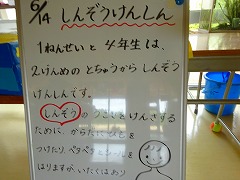 6/14 しんぞうけんしん
1ねんせいと4年生は、
2げんめのとちゅうからしんぞう
けんしんです。
しんぞうのうごきをけんさする
ために、からだに
つけたり、ペタペタ
はりますが、いたくはあり